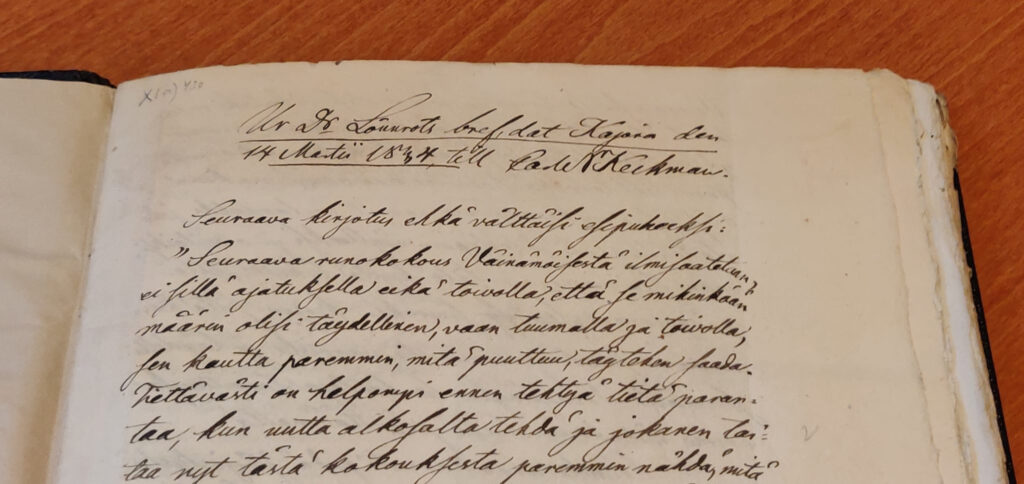 Ur Dr Lönnrots bref, dat Kajana den
14 Martii 1834, till C. N. Keckman.
Seuraava kirjotus ehkä välttäisi esipuheeksi:
"Seuraava runokokous Väinämöisestä ilmisaatetaan,
ei sillä ajatuksella eikä toivolla, että se mihinkään
määrin olisi täydellinen, vaan tuumalla ja toivolla,
sen kautta paremmin, mitä puuttuu, täytehen saada.
Tiettävästi on helpompi ennen tehtyä tietä paran-
taa, kun uutta alkosalta tehdä ja jokanen tai-
taa nyt tästä kokouksesta paremmin nähdä, mitä